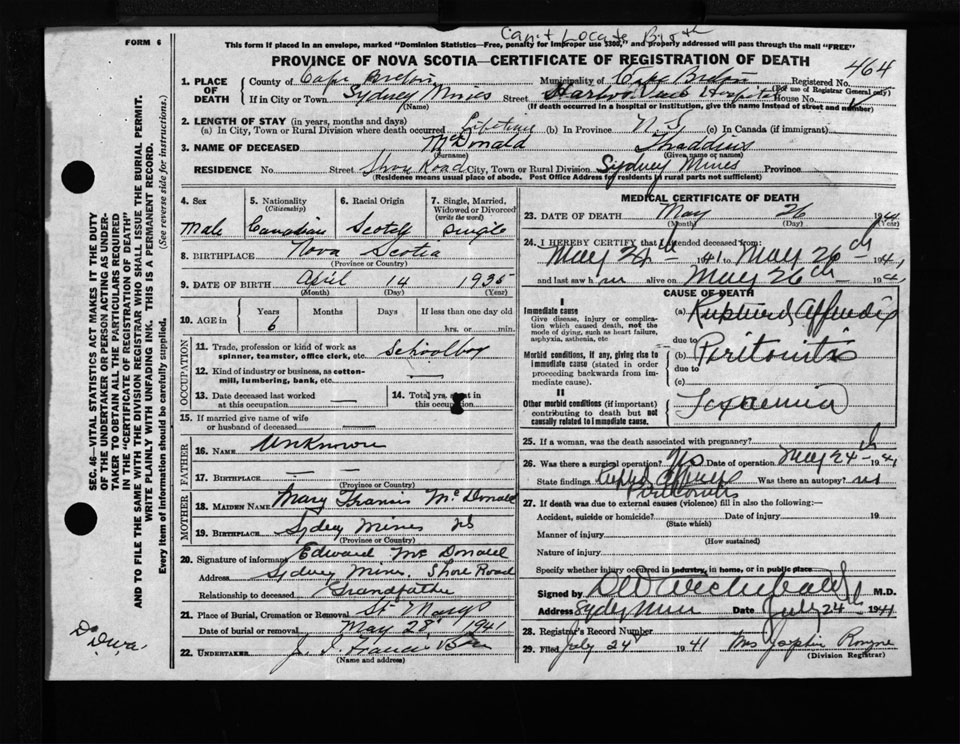 Can't Locate Birth
FORM 6
This form if placed in an envelope, marked "Dominion Statistics—Free, penalty for improper use $300," and properly addressed will pass through the mail "FREE"
PROVINCE OF NOVA SCOTIA—CERTIFICATE OF REGISTRATION OF DEATH
464
1. PLACE OF DEATH County of Cape Breton Municipality of Cape Breton Registered No.
(For use of Registrar General only)
If in City or Town Sydney Mines Street Harbor View Hospital House No.
(Name) (If death occurred in a hospital or institution, give the name instead of street and number)
2. LENGTH OF STAY (in years, months and days)
(a) In City, Town or Rural Division where death occurred Lifetime (b) In Province N.S. (c) In Canada (if immigrant)
3. NAME OF DECEASED McDonald Thaddius
(Surname) (Given name or names)
RESIDENCE No. Street Shore Road City, Town or Rural Division Sydney Mines Province
(Residence means usual place of abode. Post Office Address for residents in rural parts not sufficient)
4. Sex Male
5. Nationality (Citizenship) Canadian
6. Racial Origin Scotch
7. Single, Married, Widowed or Divorced (write the word) Single
8. BIRTHPLACE Nova Scotia
(Province or Country)
9. DATE OF BIRTH April 14 1935
(Month) (Day) (Year)
10. AGE in Years Months Days If less than one day old
6 hrs. or min.
OCCUPATION
11. Trade, profession or kind of work as spinner, teamster, office clerk, etc. Schoolboy
12. Kind of industry or business, as cotton-mill, lumbering, bank, etc. —
13. Date deceased last worked at this occupation —
14. Total yrs. spent in this occupation
15. If married give name of wife or husband of deceased —
FATHER
16. NAME Unknown
17. BIRTHPLACE — —
(Province or Country)
MOTHER
18. MAIDEN NAME Mary Francis McDonald
19. BIRTHPLACE Sydney Mines NS
(Province or Country)
20. Signature of informant Edward McDonald
Address Sydney Mines, Shore Road
Relationship to deceased Grandfather
21. Place of Burial, Cremation or Removal St Marys
Date of burial or removal May 28, 1941
22. UNDERTAKER J. J. Francis
(Name and address)
MEDICAL CERTIFICATE OF DEATH
23. DATE OF DEATH May 26 1941
(Month) (Day) (Year)
24. I HEREBY CERTIFY that I attended deceased from:
May 24th 1941 to May 26th 1941
and last saw him alive on May 26th 1941
CAUSE OF DEATH
I
Immediate cause
Give disease, injury or complication which caused death, not the mode of dying, such as heart failure, asphyxia, asthenia, etc
(a) Ruptured Appendix
due to
Morbid conditions, if any, giving rise to immediate cause (stated in order proceeding backwards from immediate cause).
(b) Peritonitis
due to
(c)
II
Other morbid conditions (if important) contributing to death but not causally related to immediate cause.
Toxaemia
25. If a woman, was the death associated with pregnancy?
26. Was there a surgical operation? Yes Date of operation May 24th 1941
State findings Peritonitis Was there an autopsy? no
27. If death was due to external causes (violence) fill in also the following:—
Accident, suicide or homicide? Date of injury 19
(State which)
Manner of injury
(How sustained)
Nature of injury
Specify whether injury occurred in industry, in home, or in public place
Signed by M.D.
Address Sydney Mines Date July 24th 1941
28. Registrar's Record Number
29. Filed July 24 1941 Mrs Josephine
(Division Registrar)
SEC. 46—VITAL STATISTICS ACT MAKES IT THE DUTY
OF THE UNDERTAKER OR PERSON ACTING AS UNDER-
TAKER TO OBTAIN ALL THE PARTICULARS REQUIRED
IN THE "CERTIFICATE OF REGISTRATION OF DEATH"
AND TO FILE THE SAME WITH THE DIVISION REGISTRAR WHO SHALL ISSUE THE BURIAL PERMIT.
WRITE PLAINLY WITH UNFADING INK. THIS IS A PERMANENT RECORD.
Every item of information should be carefully supplied. (See reverse side for instructions.)